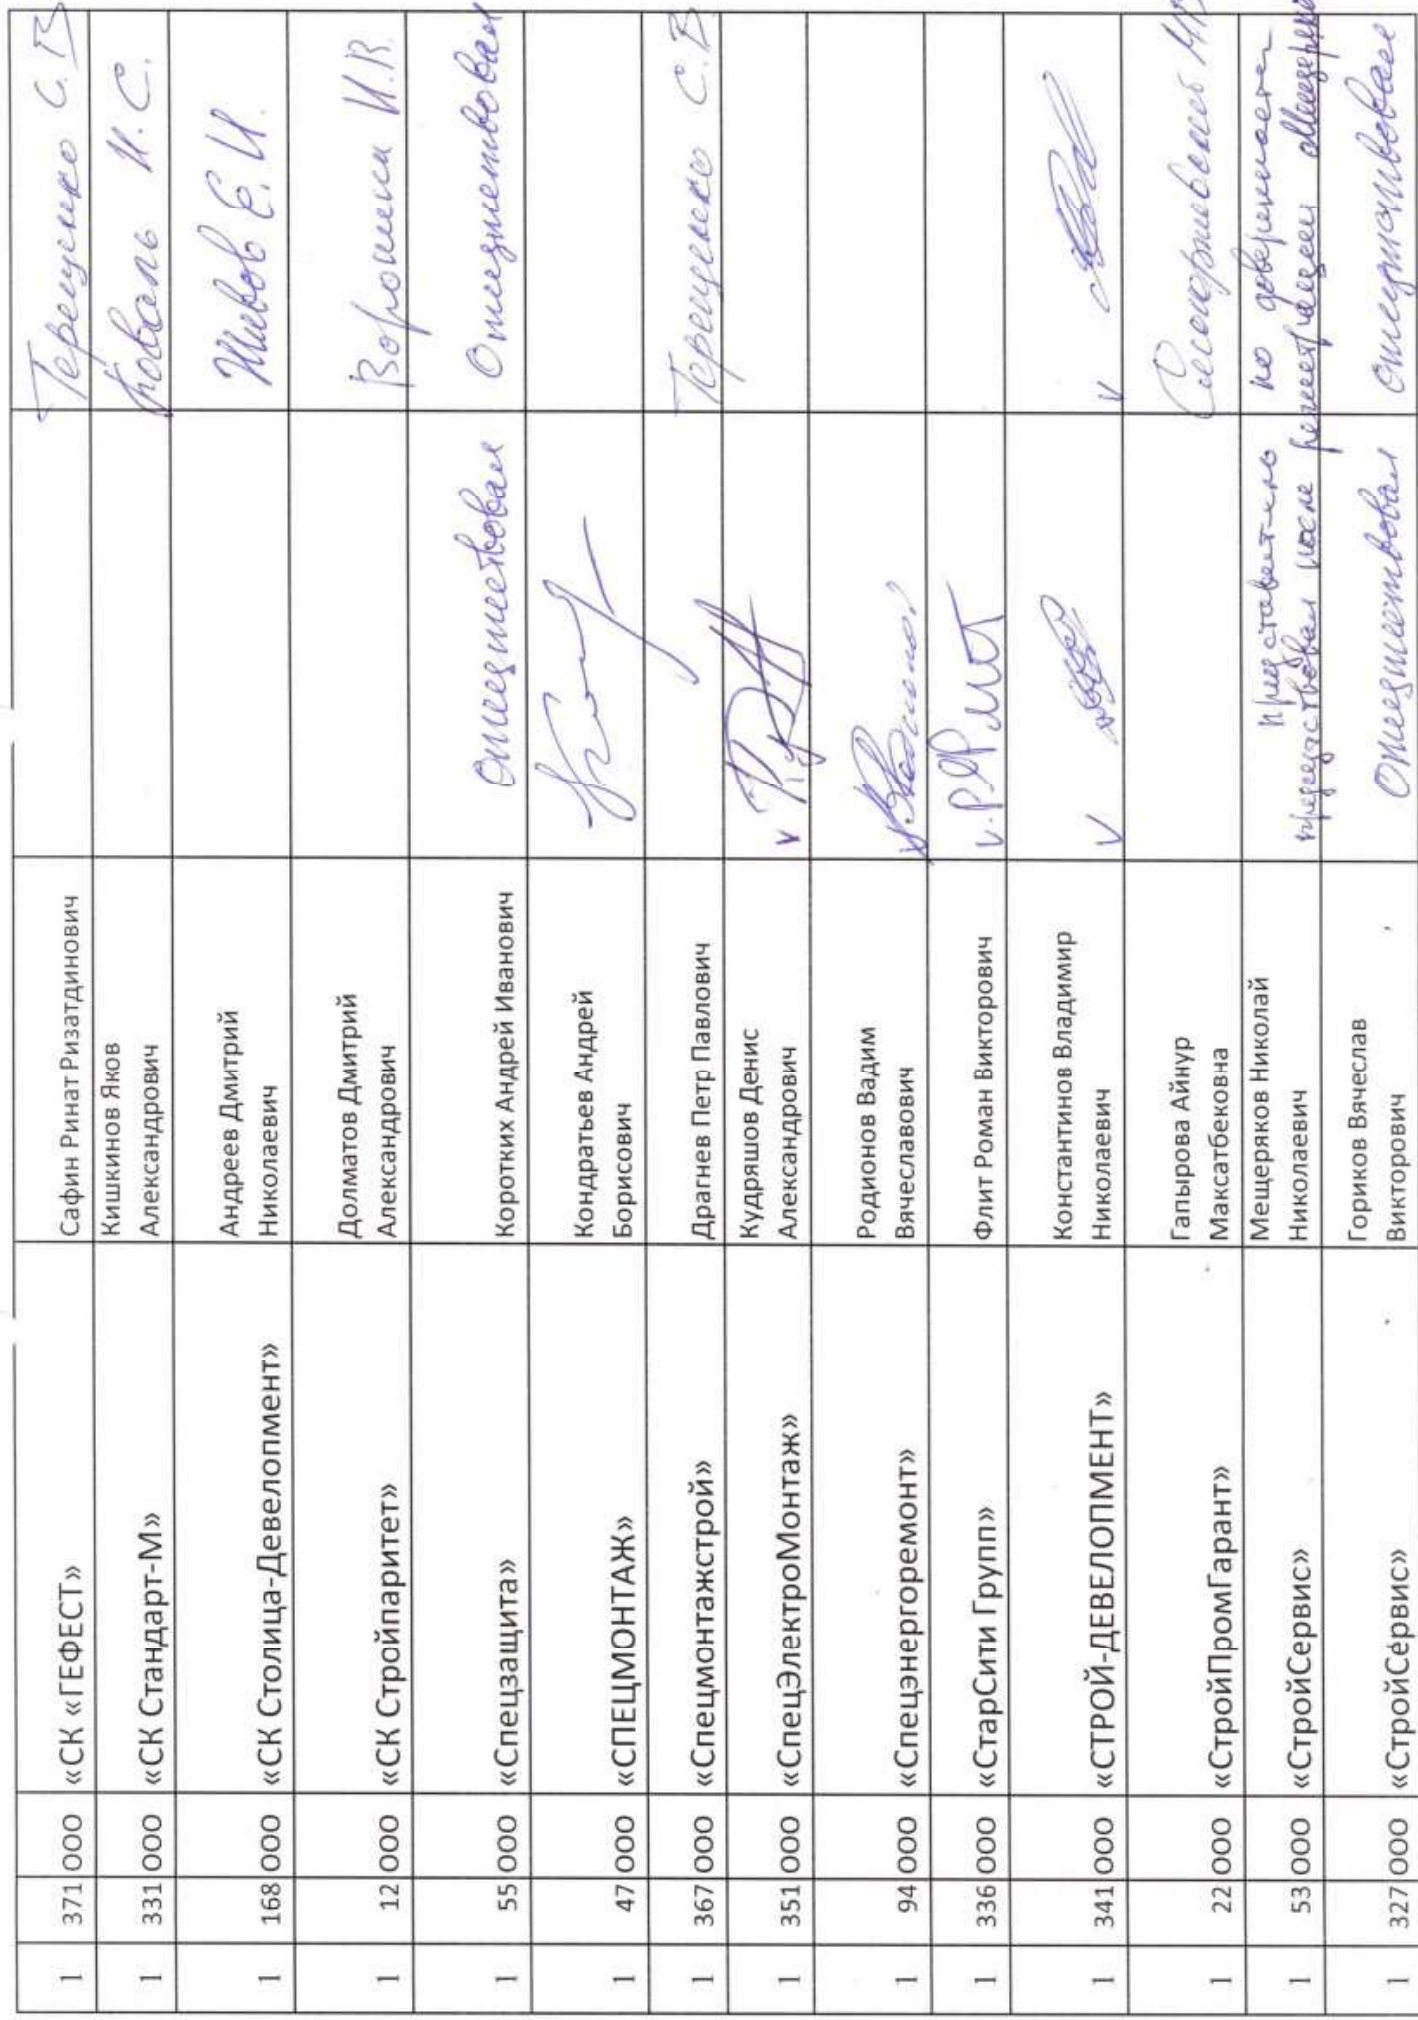 1 371 ООО «СК «ГЕФЕСТ» Сафин Ринат Ризатдинович Терещенко С.В
1 331 ООО «СК Стандарт-М» Кишкинов Яков
Александрович Коваль И.С.
1 168 ООО «СК Столица-Девелопмент» Андреев Дмитрий
Николаевич Шевов Е.И.
1 12 ООО «СК Стройпаритет» Долматов Дмитрий
Александрович Воронин И.В.
1 55 ООО «Спецзащита» Коротких Андрей Иванович Отсутствовал Отсутствовал
1 47 ООО «СПЕЦМОНТАЖ» Кондратьев Андрей
Борисович
1 367 ООО «Спецмонтажстрой» Драгнев Петр Павлович Терещенко С.В
1 351 ООО «СпецЭлектроМонтаж» Кудряшов Денис
Александрович v
1 94 ООО «Спецэнергоремонт» Родионов Вадим
Вячеславович v
1 336 ООО «СтарСити Групп» Флит Роман Викторович v
1 341 ООО «СТРОЙ-ДЕВЕЛОПМЕНТ» Константинов Владимир
Николаевич v v
1 22 ООО «СтройПромГарант» Гапырова Айнур
Максатбековна
1 53 ООО «СтройСервис» Мещеряков Николай
Николаевич представитель по доверенности
после регистрации
1 327 ООО «СтройСервис» Гориков Вячеслав
Викторович Отсутствовал Отсутствовал